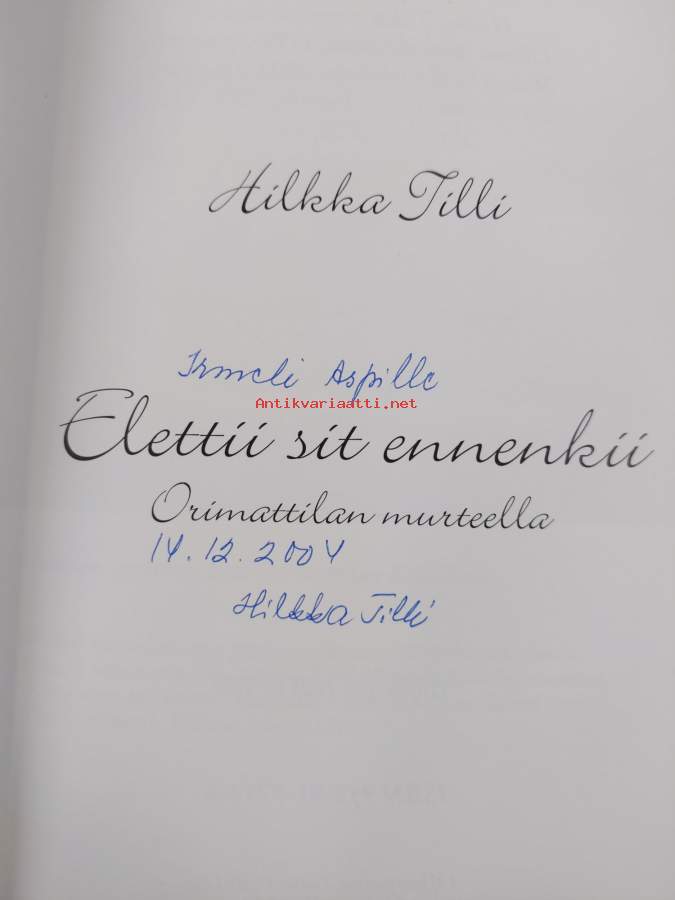 Hilkka Tilli
Irmeli Aspille
Antikvariaatti.net
Elettii sit ennenkii
Orimattilan murteella
14.12.2004
Hilkka Tilli